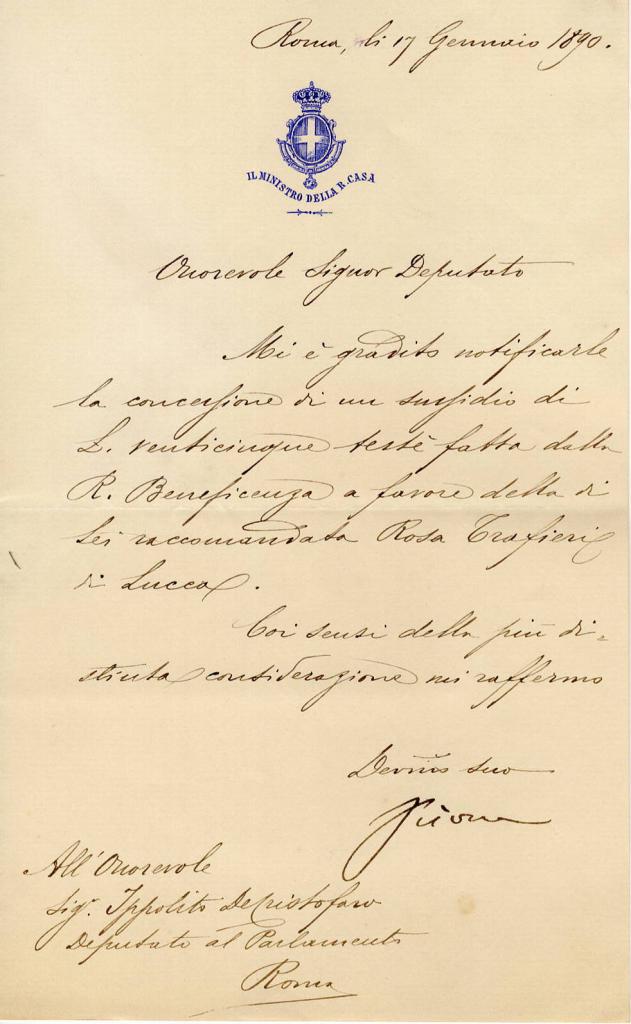 Roma, li 17 Gennaio 1890.
IL MINISTRO DELLA R. CASA
Onorevole Signor Deputato
Mi è gradito notificarle
la concessione di un sussidio di
L. venticinque testè fatta dalla
R. Beneficenza a favore della di
Lei raccomandata Rosa Trafieri
di Lucca.
Coi sensi della più di=
stinta considerazione mi raffermo
Devmo suo
All'Onorevole
Sigr. Ippolito Decristofaro
Deputato al Parlamento
Roma